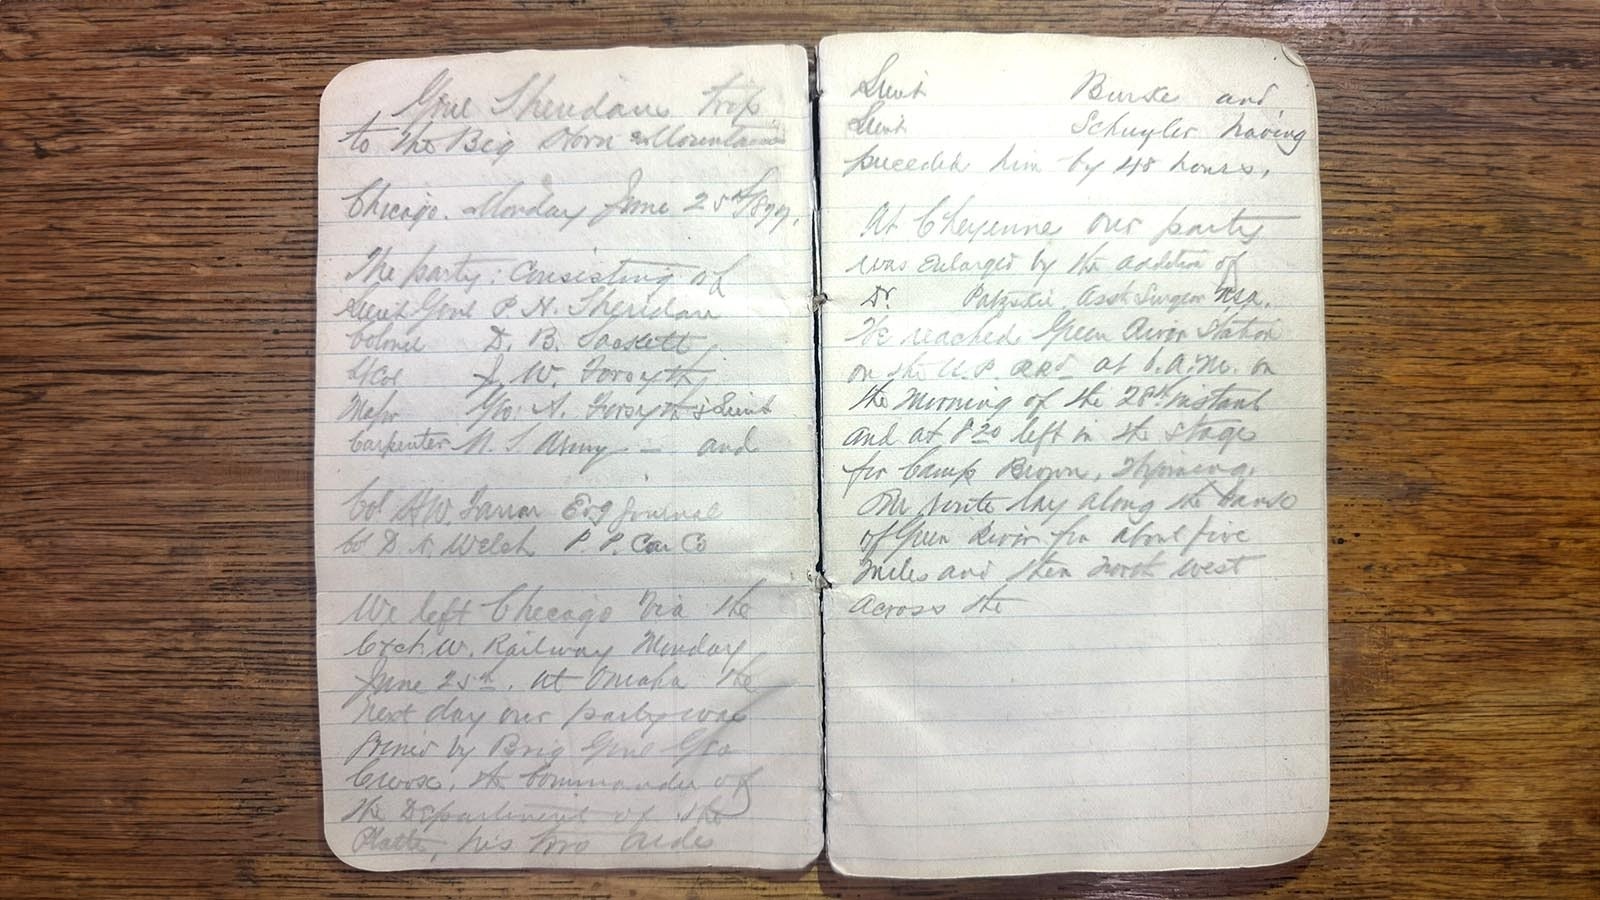 Genl Sheridans trip
to the Big Horn Mountains
Chicago. Monday June 25th/1877.
The party: Consisting of
Lieut Genl P. H. Sheridan
Colonel D. B. Sackett
Lt Col J. W. Forsyth
Major Geo. A. Forsyth & Lieut
Carpenter U. S Army — and
Col H W. Farrar Eng Journal
Col D. N. Welch P. P. Car Co
We left Checago Via the
C & N. W. Railway Monday
June 25th. At Omaha the
next day our party was
joined by Brig Genl Geo
Crook, the Commander of
the Department of the
Platte, his two Aides
Lieut Burke and
Lieut Schuyler having
preceded him by 48 hours.
At Cheyenne our party
was enlarged by the addition of
Dr. Asst Surgeon USA.
We reached Green River Station
on the U. P. RRd at 6. A. M. on
the Morning of the 28th instant
and at 8 20 left in the stage
for Camp Brown, Wyoming.
Our route lay along the bank
of Green River for about five
Miles and then North West
across the